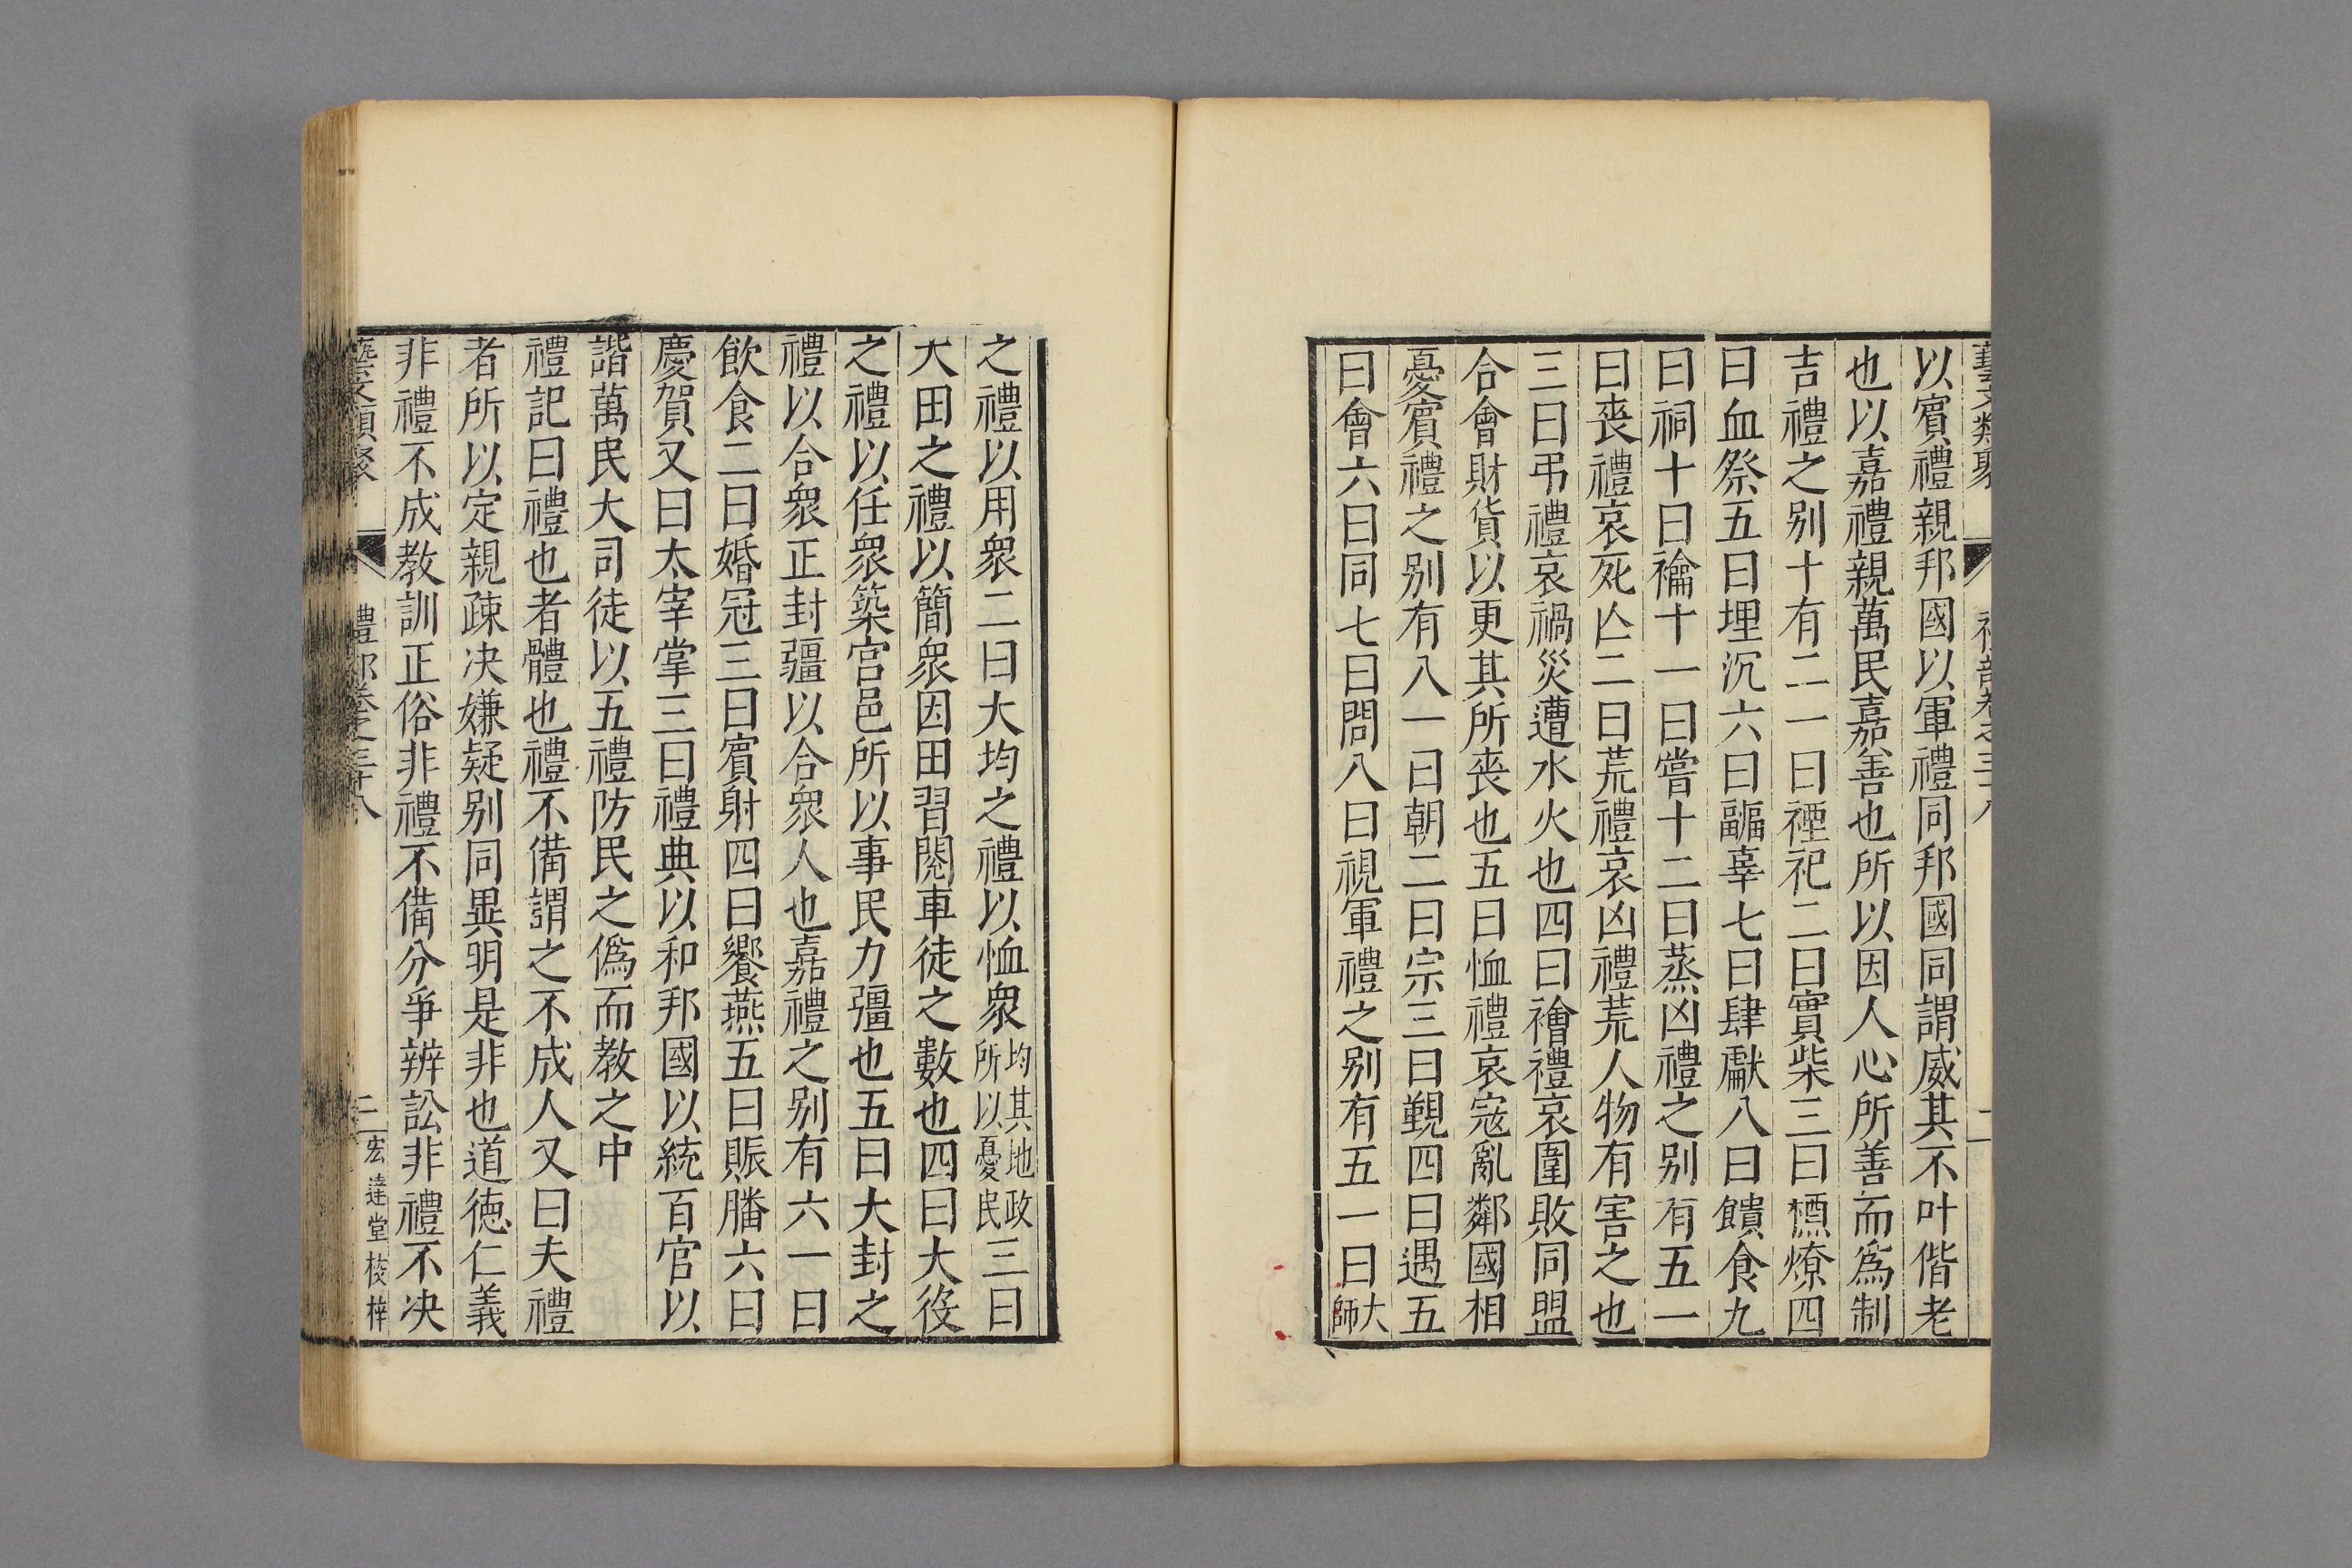 藝文類聚
禮部卷之三十八
以賓禮親邦國以軍禮同邦國同謂威其不叶偕老
也以嘉禮親萬民嘉善也所以因人心所善而爲制
吉禮之别十有二一曰禋祀二曰實柴三曰槱燎四
曰血祭五曰埋沉六曰疈辜七曰肆獻八曰饋食九
曰祠十曰禴十一曰嘗十二曰蒸凶禮之别有五一
曰喪禮哀死亾二曰荒禮哀凶禮荒人物有害之也
三曰弔禮哀禍災遭水火也四曰襘禮哀圍敗同盟
合會財貨以更其所喪也五曰恤禮哀寇亂鄰國相
憂賓禮之别有八一曰朝二曰宗三曰覲四曰遇五
曰會六曰同七曰問八曰視軍禮之别有五一曰大師
之禮以用衆二曰大均之禮以恤衆均其地政所以憂民三曰
大田之禮以簡衆因田習閱車徒之數也四曰大役
之禮以任衆築宫邑所以事民力彊也五曰大封之
禮以合衆正封疆以合衆人也嘉禮之别有六一曰
飲食二曰婚冠三曰賓射四曰饗燕五曰賑膰六曰
慶賀又曰太宰掌三曰禮典以和邦國以統百官以
諧萬民大司徒以五禮防民之僞而教之中
禮記曰禮也者體也禮不備謂之不成人又曰夫禮
者所以定親疎决嫌疑别同異明是非也道德仁義
非禮不成教訓正俗非禮不備分爭辨訟非禮不决
藝文類聚
禮部卷之三十八
二
宏達堂校梓